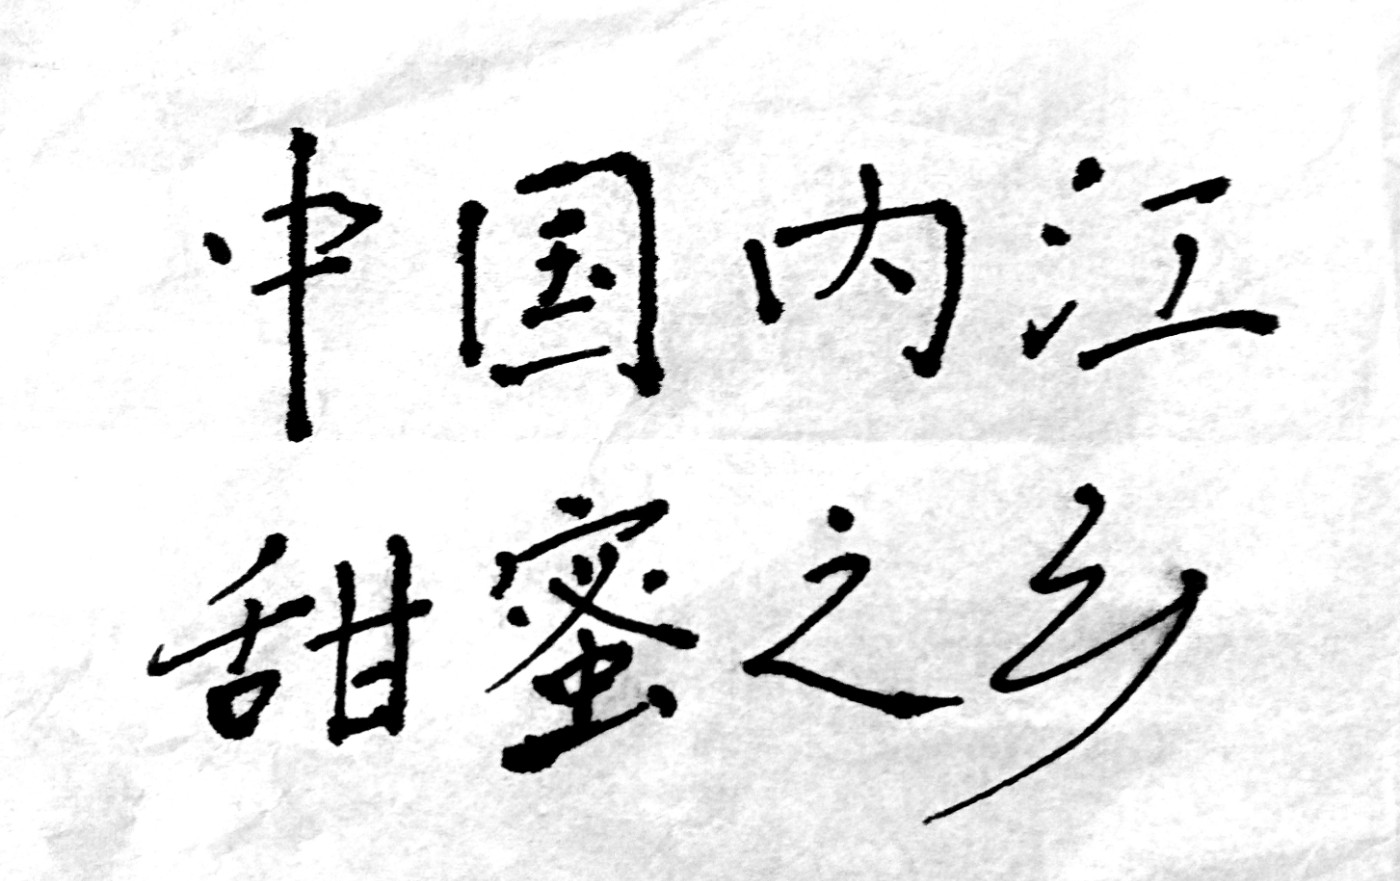 中国内江
甜蜜之乡